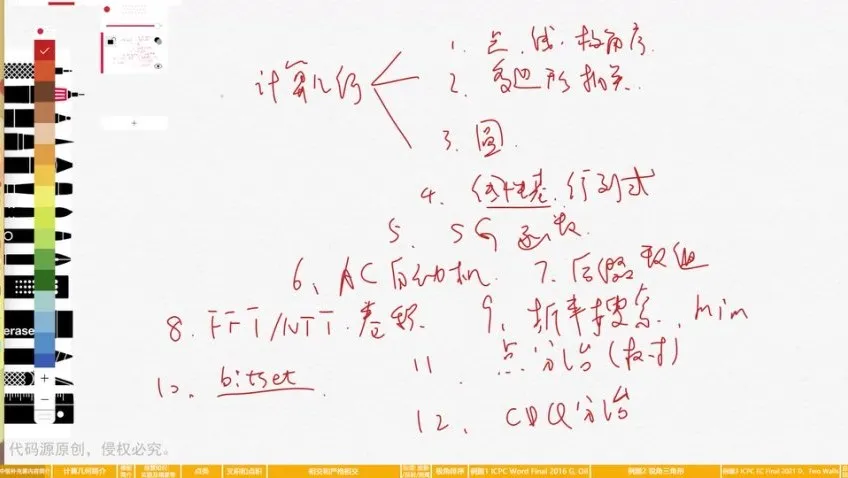 计算几何
1. 点.线.极角序
2. 多边形相关
3. 圆
4. 线性基.行列式
5. SG函数
6、AC自动机 7. 后缀数组
8. FFT/NTT.卷积 9、折半搜索 . mim
10、bitset 11. 点分治(树)
12、CDQ分治
erase
代码源原创,侵权必究。
计算几何简介 点类 叉积和点积 相交和严格相交 极角排序 例题1 ICPC Word Final 2016 G, Oil 例题2 锐角三角形 例题3 ICPC EC Final 2021 D, Two Walls